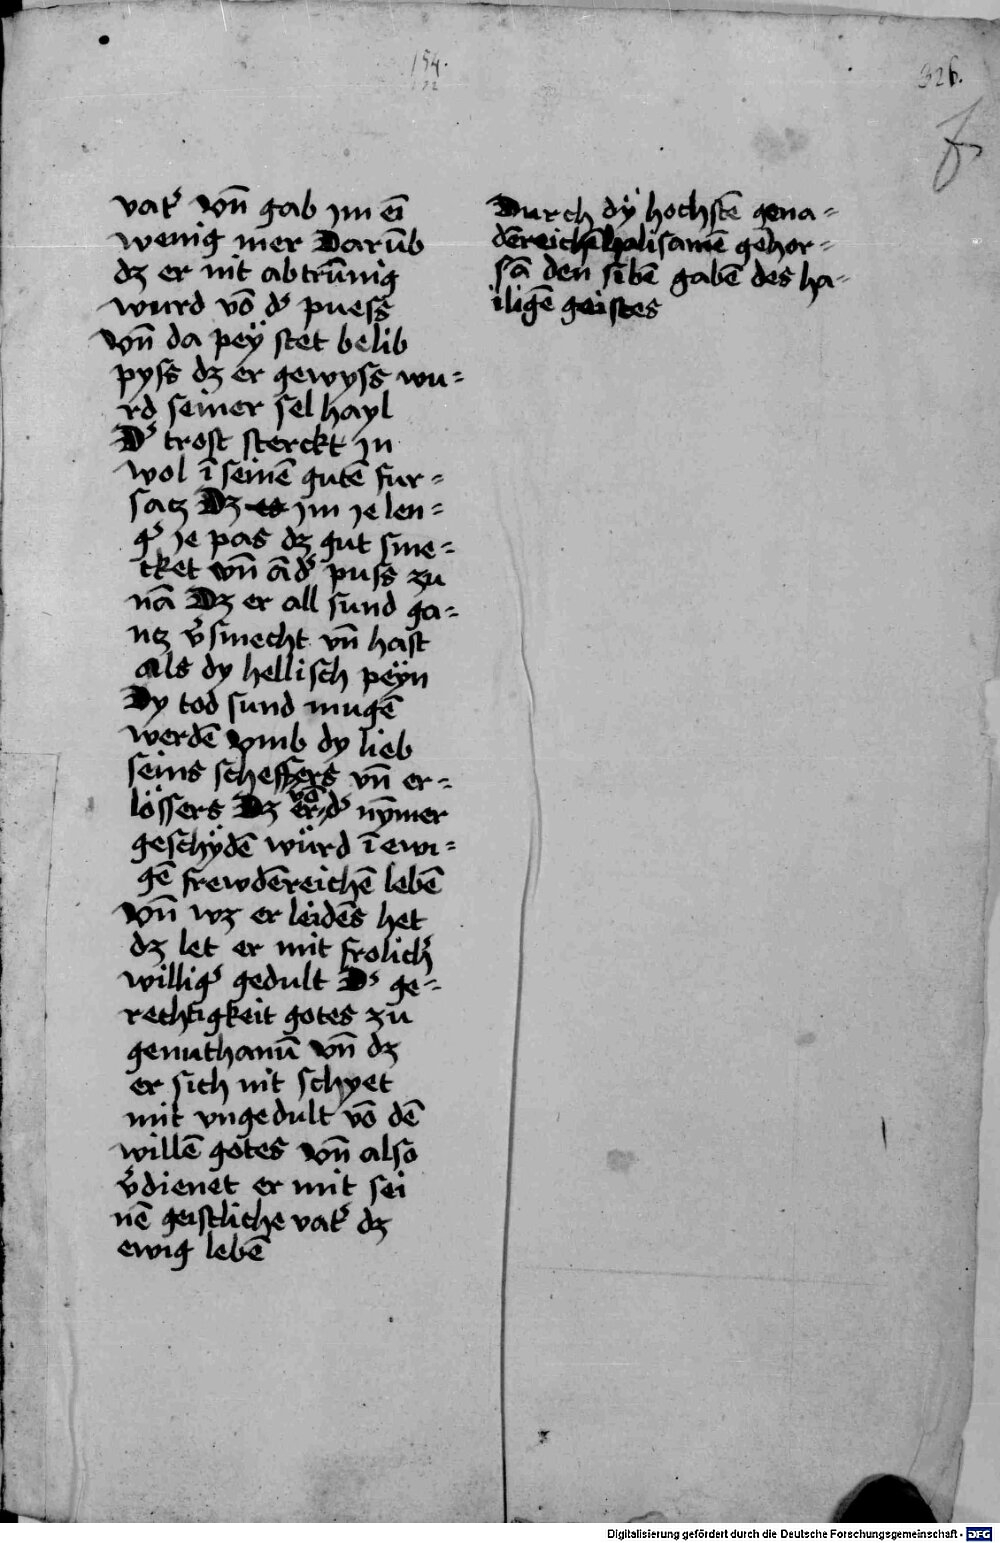 154.
326.
vatʾ vn̄ gab im eī
wenig mer Darūb
dz er nit abtrūnig
wurd vō dʾ puess
vn̄ da peÿ stet belib
pyss dz er gewyss wu=
rd seiner sel hayl
Dʾ trost sterckt jn
wol ī seinē gutē fur=
satz Dz es im ie len=
gʾ ie pas dz gut sme=
cket vn̄ ādʾ puss zu
nā Dz er all sund ga=
ntz vʾsmecht vn̄ hast
als dy hellisch peÿn
Dy tod sund mugē
werdē vmb dy lieb
seins scheffers vn̄ er=
lössers Dz er vō dʾ nȳmer
geschÿdē würd ī ewi=
gē frewdēreichē lebē
vn̄ wz er leidēs het
dz let er mit frolichʾ
willigʾ gedult Dʾ ge=
rechtigkeit gotes zu
genuthanū vn̄ dz
er sich nit schyet
mit vngedult vō dē
willē gotes vn̄ also
vʾdienet er mit sei
nē geistliche vatʾ dz
ewig lebē
Durch dÿ hochstē gena=
dēreichē halisamē gehor=
sā den sibē gabē des ha=
iligē geistes
Digitalisierung gefördert durch die Deutsche Forschungsgemeinschaft - DFG